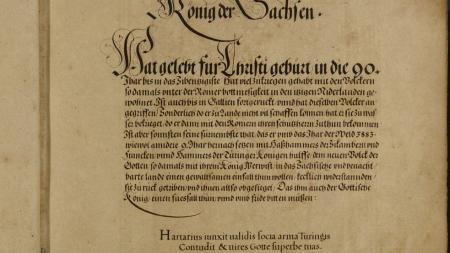 König der Sachsen.
Hat gelebt für Christi geburt in die 90.
Jhar bis in das Sibenzigiste hat viel zukriegen gehabt mit den Völckern
so damals unter der Römer bottmessigkeit in den itzigen Niderlanden ge-
wohnet. Ist auch bis in Gallien fortgeruckt, unnd hat dieselben Völcker an-
gegriffen, Sonderlich do er zu Lande nicht zu schaffen können hat er sie zu was-
ser bekrieget, do er dann mit den Römern ihren schutzherrn zuthun bekommen
Ist aber sonsten seine fürnembste that, das er umb das Jhar der Welt 3885
wievol andere 9. Jhar hernach setzen mit Basshammers der Zikambern und
Francken unnd Hammers der Düringer Königen hulffe, dem neuen Volck der
Gothen so damals mit ihrem König Wervost, in das Sächsische und benach-
barte lande einen gewaltsamen einfall thun wollen, kecklich widerstanden,
sie zu rück getriben, und ihnen allso obgesieget, Das ihm auch der Gottische
König, einen fuesfall thun, und umb fride bitten müssen:
Hartarius iunxit validis socia arma Turingis
Contudit & vires Gotte superbe tuas.